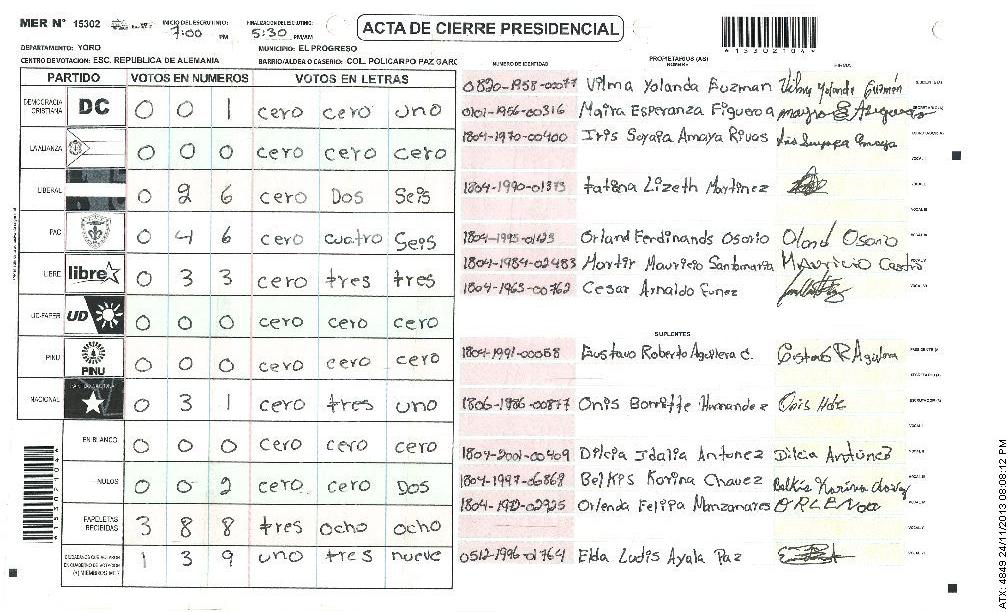 MER N° 15302 INICIO DEL ESCRUTINIO: 7:00 PM FINALIZACION DEL ESCRUTINIO: 5:30 PM/AM ACTA DE CIERRE PRESIDENCIAL
DEPARTAMENTO: YORO MUNICIPIO: EL PROGRESO
CENTRO DE VOTACION: ESC. REPUBLICA DE ALEMANIA BARRIO/ALDEA O CASERIO: COL. POLICARPO PAZ GARC
PARTIDO VOTOS EN NUMEROS VOTOS EN LETRAS
DEMOCRACIA CRISTIANA DC 0 0 1 cero cero uno
LA ALIANZA 0 0 0 cero cero cero
LIBERAL 0 2 6 cero Dos Seis
PAC 0 4 6 cero cuatro Seis
LIBRE libre 0 3 3 cero tres tres
UD-FAPER UD 0 0 0 cero cero cero
PINU PINU 0 0 0 cero cero cero
NACIONAL 0 3 1 cero tres uno
EN BLANCO 0 0 0 cero cero cero
NULOS 0 0 2 cero cero Dos
PAPELETAS RECIBIDAS 3 8 8 tres ocho ocho
CIUDADANOS QUE VOTARON EN CUADERNO DE VOTACION (+) MIEMBROS MER 1 3 9 uno tres nueve
NUMERO DE IDENTIDAD PROPIETARIOS (AS) NOMBRE FIRMA
0820-1958-00077 Vilma Yolanda Guzman Vilma Yolanda Guzmán
0101-1956-00316 Maira Esperanza Figueroa
1804-1970-00400 Iris Soyapa Amaya Rivas
1804-1990-01373 Fatima Lizeth Martinez
1804-1995-01423 Orland Ferdinands Osorio Orland Osorio
1804-1984-02483 Martir Mauricio Santamaria Mauricio Castro
1804-1963-00762 Cesar Arnaldo Funez
SUPLENTES
1804-1991-00058 Gustavo Roberto Aguilera C. Gustavo R Aguilera
1806-1986-00877 Onis Hernandez Onis Hdez
1804-2001-00409 Dilcia Idalia Antunez Dilcia Antúnez
1804-1997-06869 Karina Chavez
Orlenda Felipa Manzanares ORLENDA
0512-1996-01764 Elda Ludis Ayala Paz
ATX: 4849 24/11/2013 08:08:12 PM